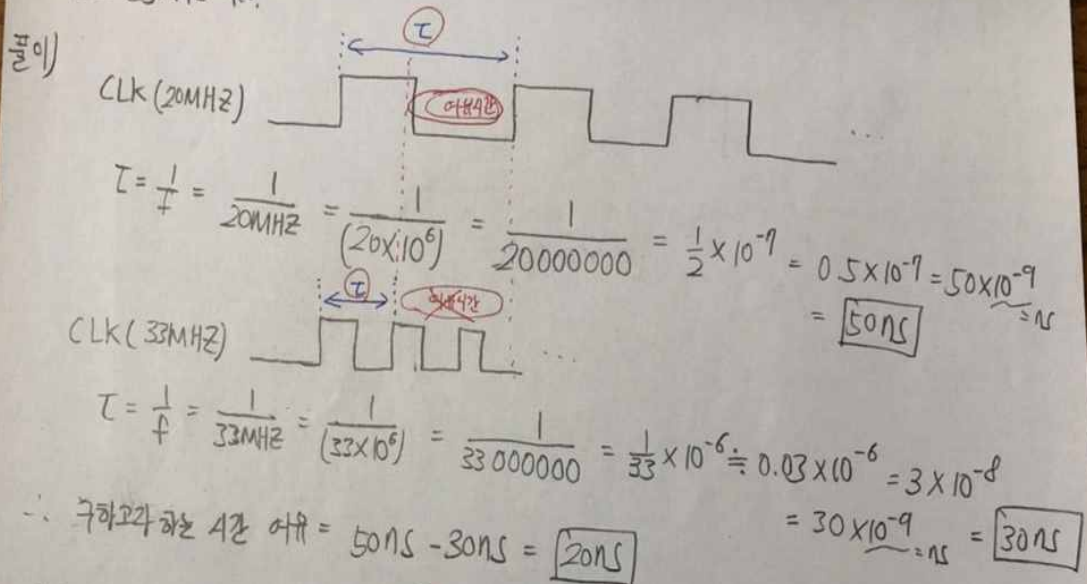 풀이)
τ
CLK(20MHZ) 여유시간 ...
τ = 1/f = 1/20MHZ = 1/(20×10⁶) = 1/20000000 = 1/2 × 10⁻⁷ = 0.5×10⁻⁷ = 50×10⁻⁹
=ns
= 50ns
τ
여유시간
CLK(33MHZ) ...
τ = 1/f = 1/33MHZ = 1/(33×10⁶) = 1/33000000 = 1/33 × 10⁻⁶ ≒ 0.03×10⁻⁶ = 3×10⁻⁸
= 30×10⁻⁹ = 30ns
=ns
∴ 구하고라 하는 시간 여유 = 50ns - 30ns = 20ns